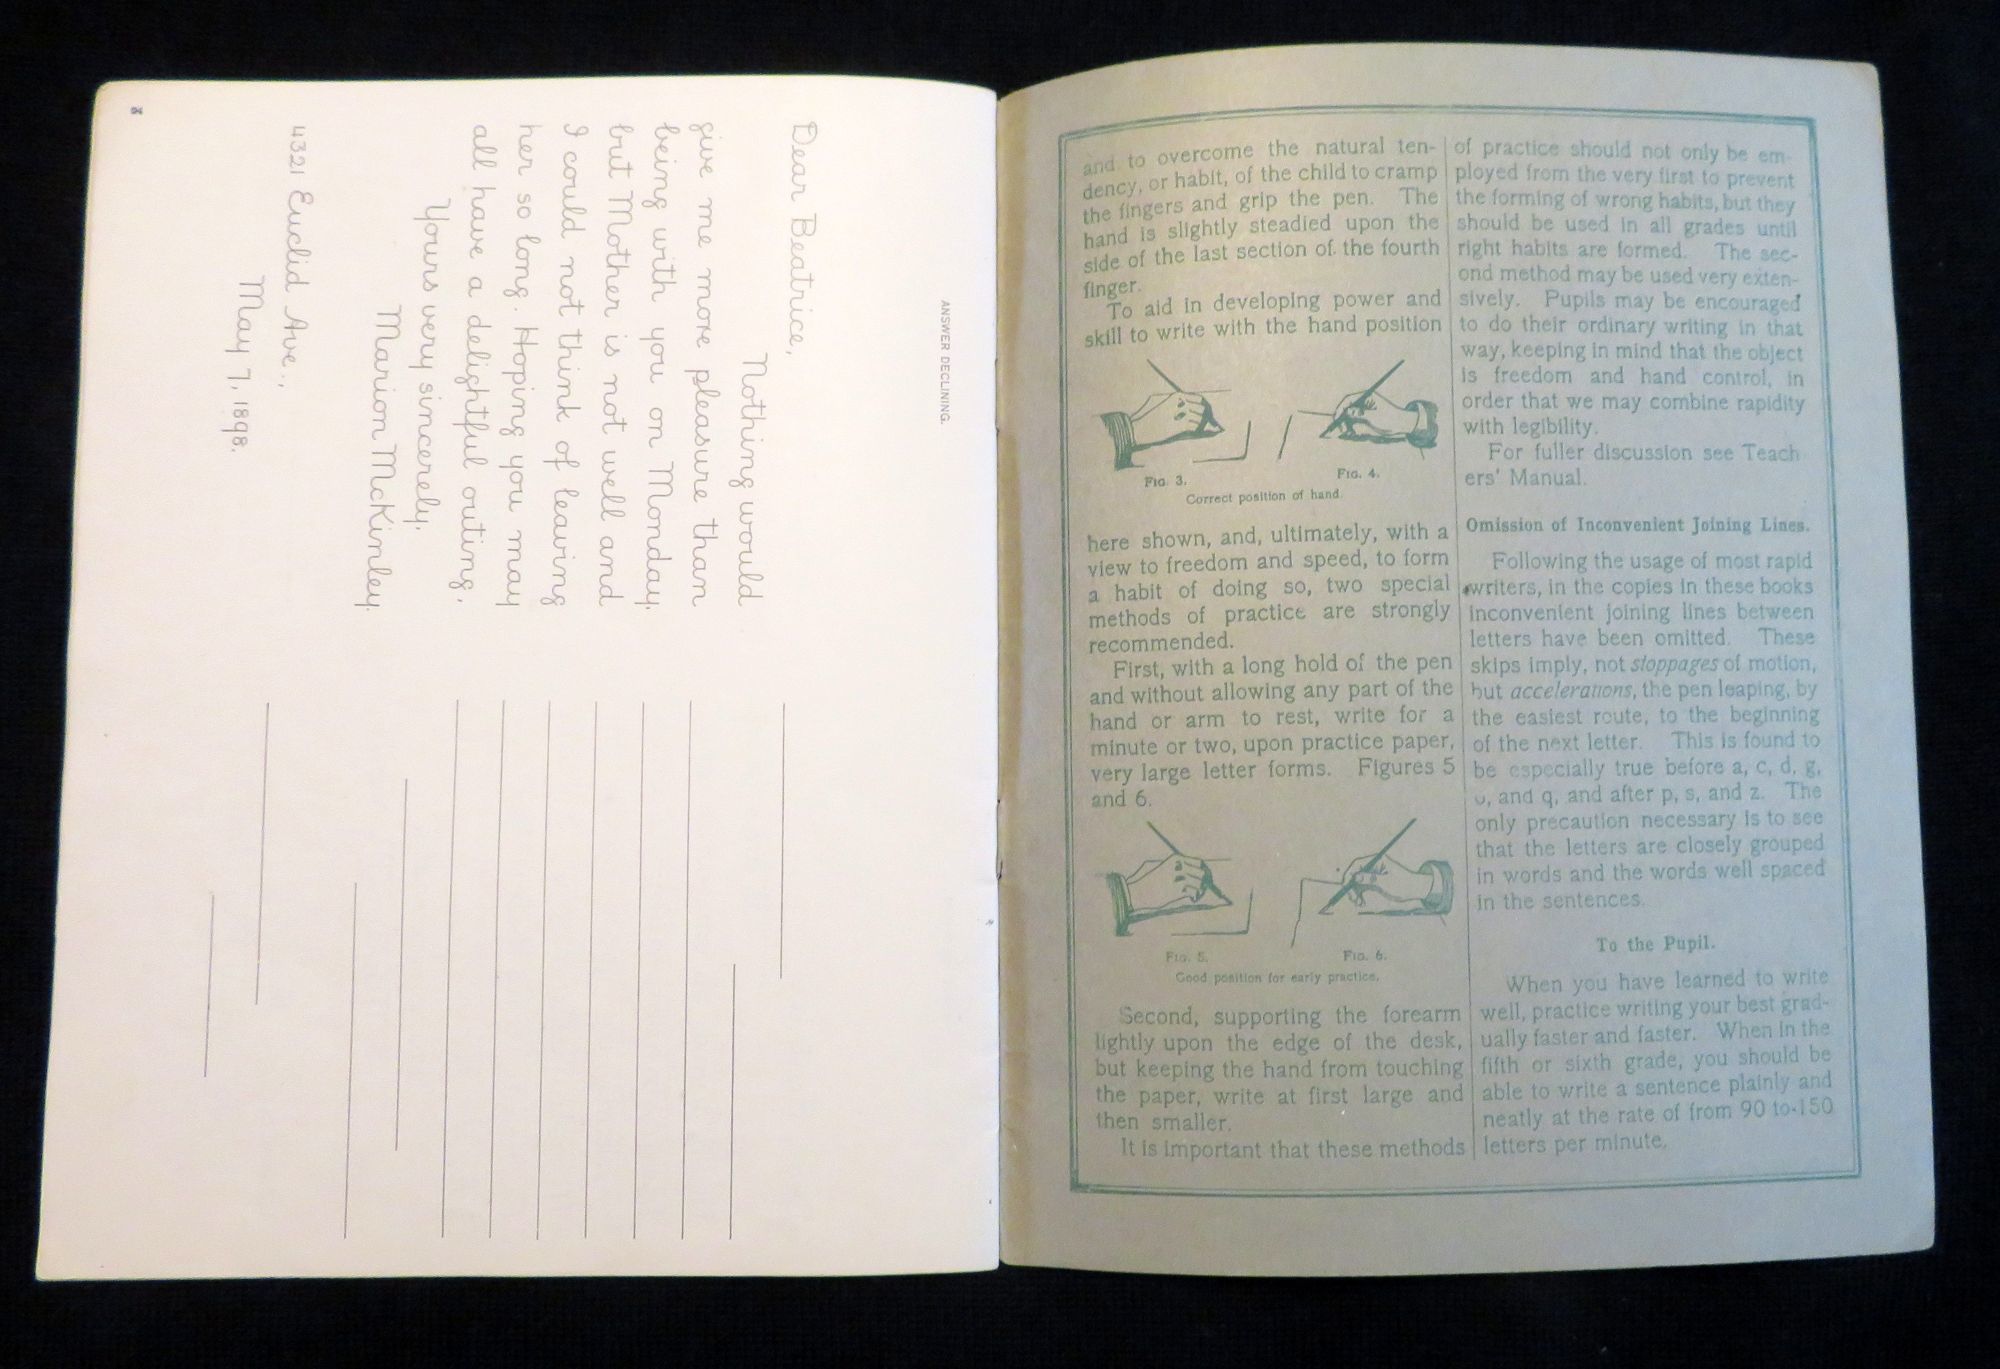 ANSWER DECLINING.
Dear Beatrice,
Nothing would
give me more pleasure than
being with you on Monday,
but Mother is not well and
I could not think of leaving
her so long. Hoping you may
all have a delightful outing,
Yours very sincerely,
Marion McKinley.
4321 Euclid Ave.,
May 7, 1898.
and to overcome the natural ten-
dency, or habit, of the child to cramp
the fingers and grip the pen. The
hand is slightly steadied upon the
side of the last section of the fourth
finger.
To aid in developing power and
skill to write with the hand position
FIG. 3.
FIG. 4.
Correct position of hand.
here shown, and, ultimately, with a
view to freedom and speed, to form
a habit of doing so, two special
methods of practice are strongly
recommended.
First, with a long hold of the pen
and without allowing any part of the
hand or arm to rest, write for a
minute or two, upon practice paper,
very large letter forms. Figures 5
and 6.
FIG. 5.
FIG. 6.
Good position for early practice.
Second, supporting the forearm
lightly upon the edge of the desk,
but keeping the hand from touching
the paper, write at first large and
then smaller.
It is important that these methods
of practice should not only be em-
ployed from the very first to prevent
the forming of wrong habits, but they
should be used in all grades until
right habits are formed. The sec-
ond method may be used very exten-
sively. Pupils may be encouraged
to do their ordinary writing in that
way, keeping in mind that the object
is freedom and hand control, in
order that we may combine rapidity
with legibility.
For fuller discussion see Teach
ers' Manual.
Omission of Inconvenient Joining Lines.
Following the usage of most rapid
writers, in the copies in these books
inconvenient joining lines between
letters have been omitted. These
skips imply, not stoppages of motion,
but accelerations, the pen leaping, by
the easiest route, to the beginning
of the next letter. This is found to
be especially true before a, c, d, g,
o, and q, and after p, s, and z. The
only precaution necessary is to see
that the letters are closely grouped
in words and the words well spaced
in the sentences.
To the Pupil.
When you have learned to write
well, practice writing your best grad-
ually faster and faster. When in the
fifth or sixth grade, you should be
able to write a sentence plainly and
neatly at the rate of from 90 to 150
letters per minute.